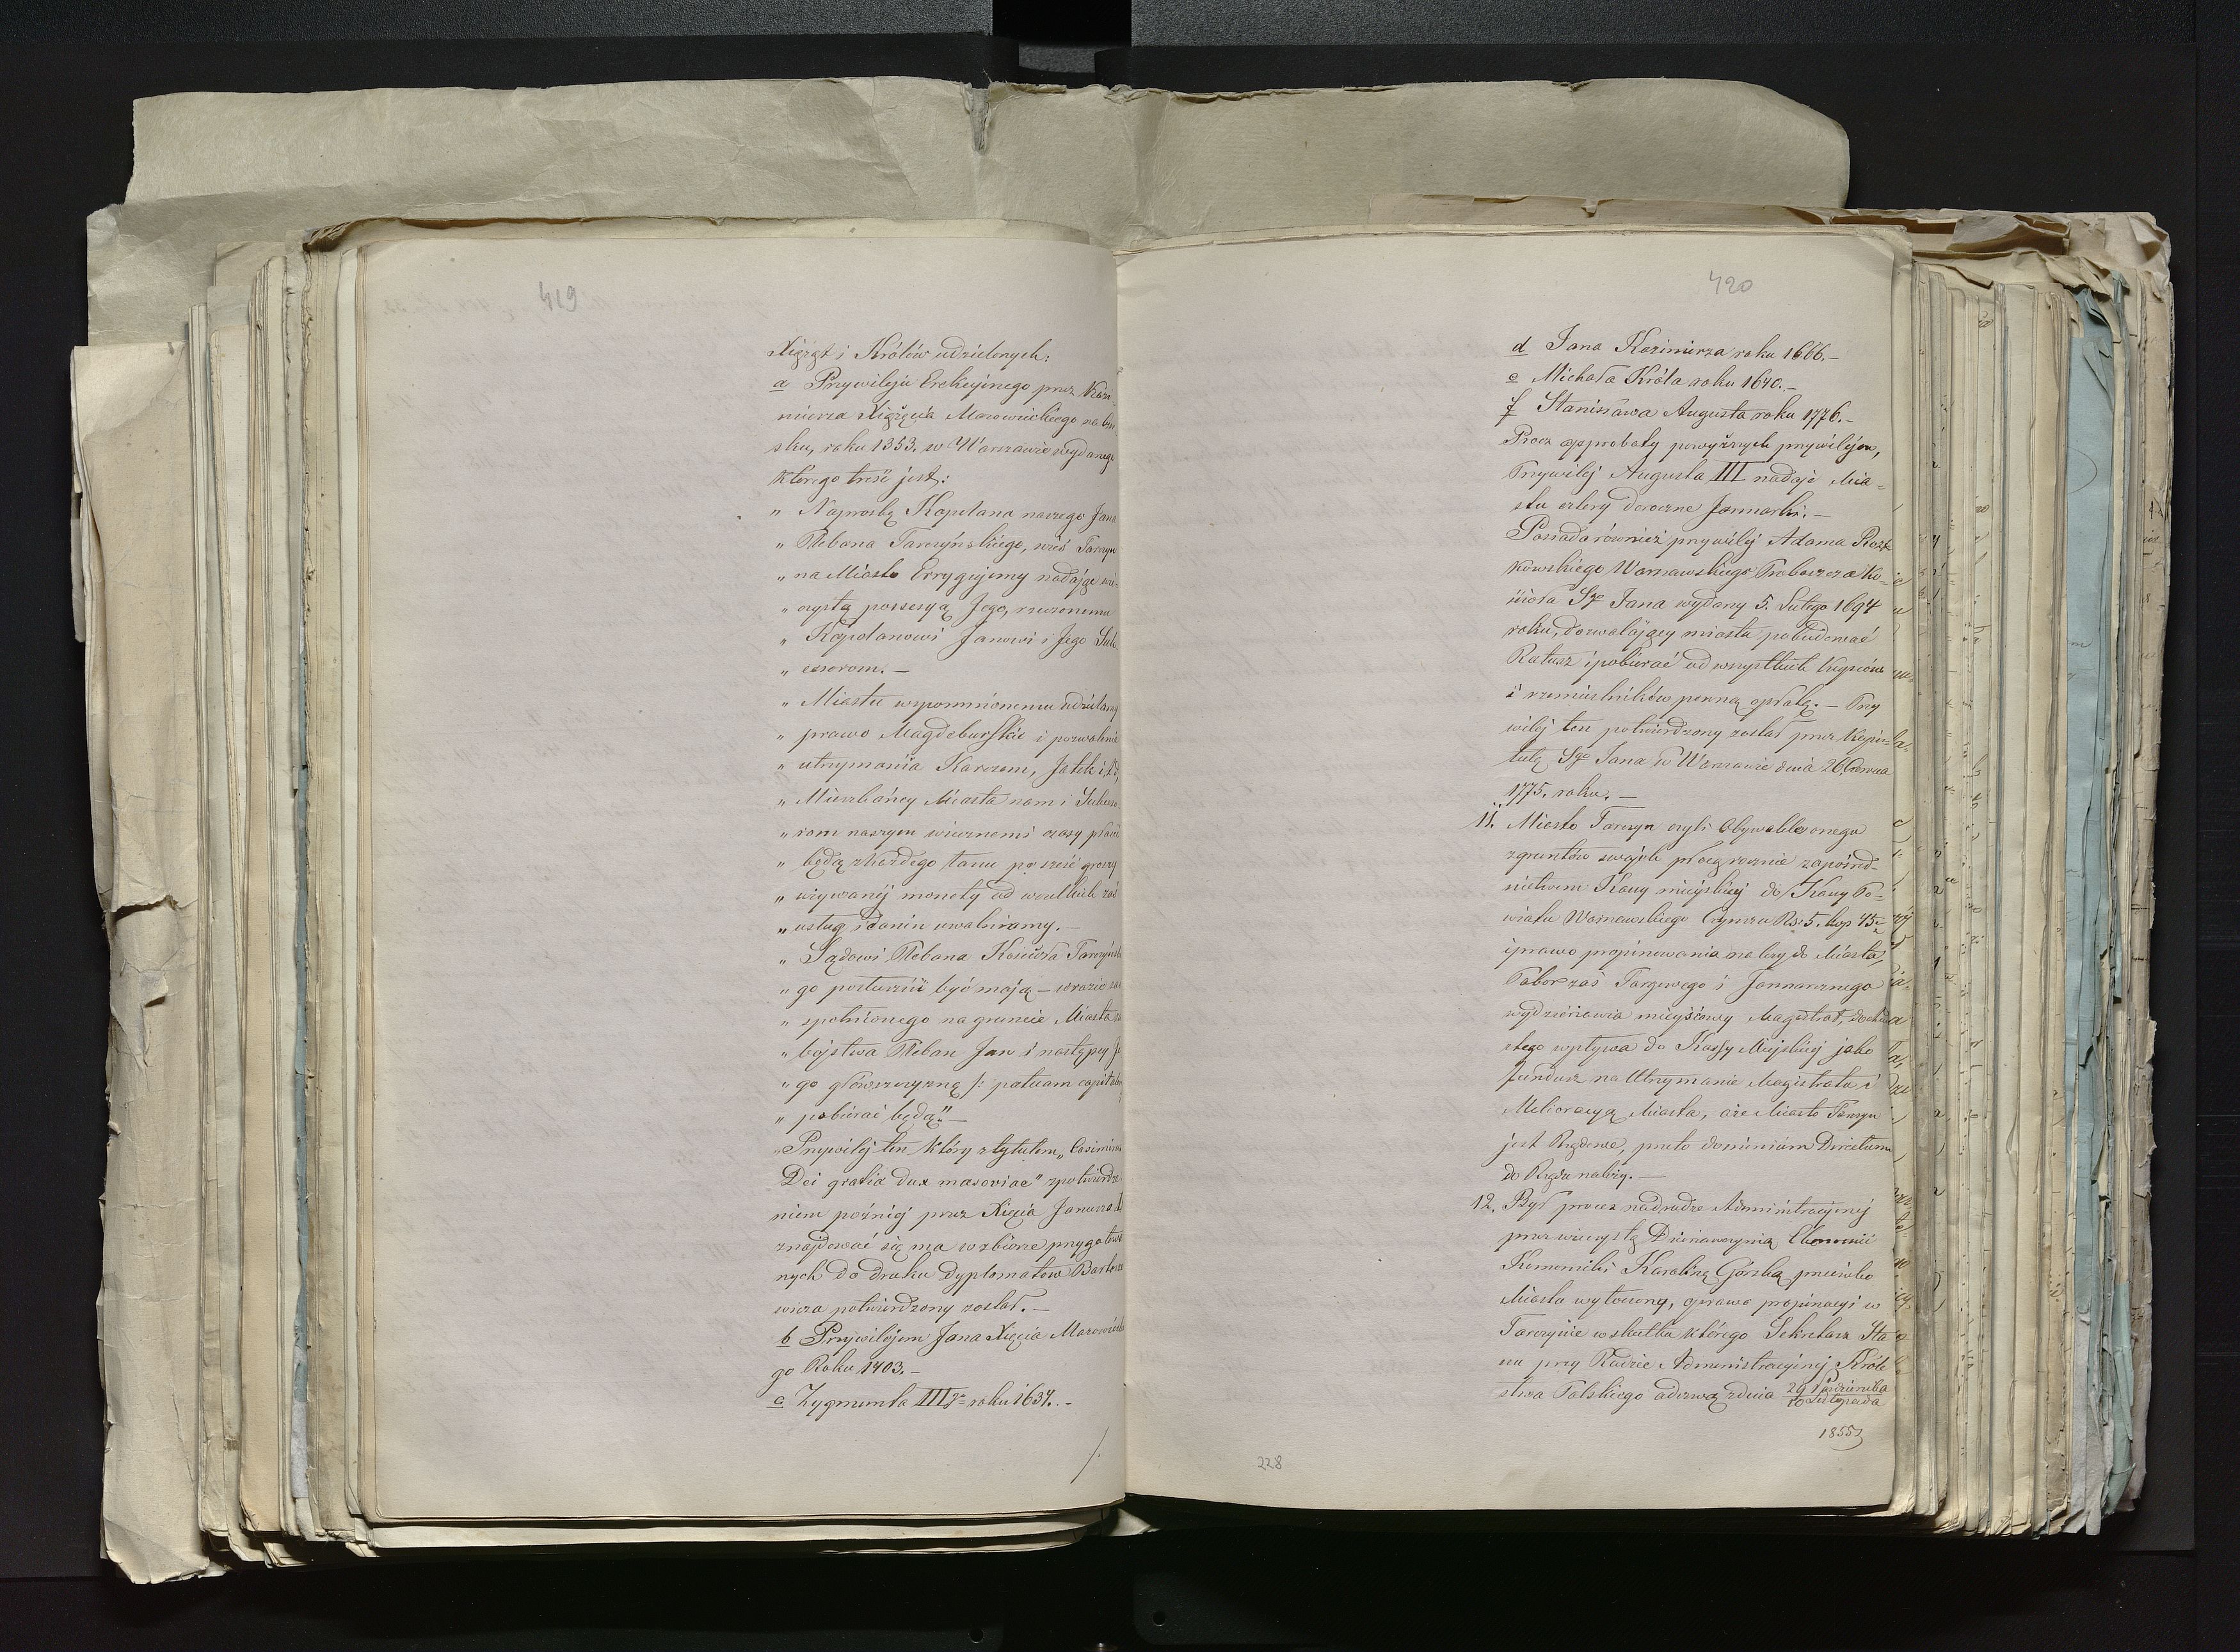 419
Xiążąt i Królów udzielonych:
a Przywileju Erekcyjnego przez Kazi-
mierza Xiążęcia Mazowieckiego na
sku, roku 1353. w Warszawie wydanego
którego treść jest:
„ Na prośbę Kapelana naszego Jana
„ Plebana Tarczyńskiego, wieś Tarczyn
„ na Miasto Erygujemy nadając wie-
„ czystą possesyą Jego, rzeczonemu
„ Kapelanowi Janowi i Jego Suk
„ cessorom. —
„ Miastu wspomnionemu udzielamy
„ prawo Magdeburskie i pozwolenie
„ utrzymania Karczem, Jatek i t.d,
„ Mieszkańcy Miasta nam i Sukcesso
„ rom naszym wiecznemi czasy płacić
„ będą z każdego łanu po sześć groszy
„ używanéj monety od wszelkich zaś
„ usług i danin uwalniamy. —
„ Sądowi Plebana Kościoła Tarczyńskie
„ go posłuszni być mają — w razie zaś
„ spełnionego na gruncie Miasta za
„ bójstwa Pleban Jan i następcy Je
„ go główszczyznę /: paenam capitalem
„ pobierać będą." —
Przywilej ten który z tytułem „Casimirus
Dei gratia dux masoviae" z potwierdze
niem poźniéj przez Xięcia Janusza
znajdować się ma w zbiorze przygotowa
nych do druku Dyplomatów Bartosze
wicza potwierdzony został. —
b Przywilejem Jana Xięcia Mazowieckie
go Roku 1403. —
c Zygmunta III go roku 1637. —
/.
420
d Jana Kazimierza roku 1666. —
e Michała Króla roku 1670. —
f Stanisława Augusta roku 1776. —
Procz approbaty powyższych przywilejów,
Przywilej Augusta III nadaje Mia-
stu cztery doroczne Jarmarki. —
Posiada również przywilej Adama Rosz
kowskiego Warszawskiego Proboszcza Ko-
ścioła Sgo Jana wydany 5. Lutego 1694
roku, dozwalający miastu pobudować
Ratusz i pobierać od wszystkich kupców
i rzemieślników pewną opłatę. — Przy
wilej ten potwierdzony został przez Kapi-
tułę Sgo Jana w Warszawie dnia 26 Czerwca
1775. roku. —
11. Miasto Tarczyn czyli Obywatele onego
z gruntów swojch płacą rocznie za pośred-
nictwem Kassy miejskiej do Kassy Po-
wiatu Warszawskiego Czynszu Rs. 5. kop 75
i prawo propinowania należy do Miasta,
Pobór zaś Targowego i Jarmarcznego
wydzierżawia miejscowy Magistrat, dochód
z tego wpływa do Kassy Miejskiej jako
fundusz na Utrzymanie Magistratu i
Melioracyą Miasta, a że Miasto Tarczyn
jest Rządowe, przeto dominium Directum
do Rządu należy. —
12. Był proces na drodze Administracyjnej
przez wieczystą Dzierżawczynią Ekonomii
Komorniki Karolinę Górską przeciwko
Miastu wytoczony, o prawo propinacyi w
Tarczynie w skutku którego Sekretarz Sta
nu przy Radzie Administracyjnej Króle
stwa Polskiego odezwą z dnia 29 Października
10 Listopada
1855
228